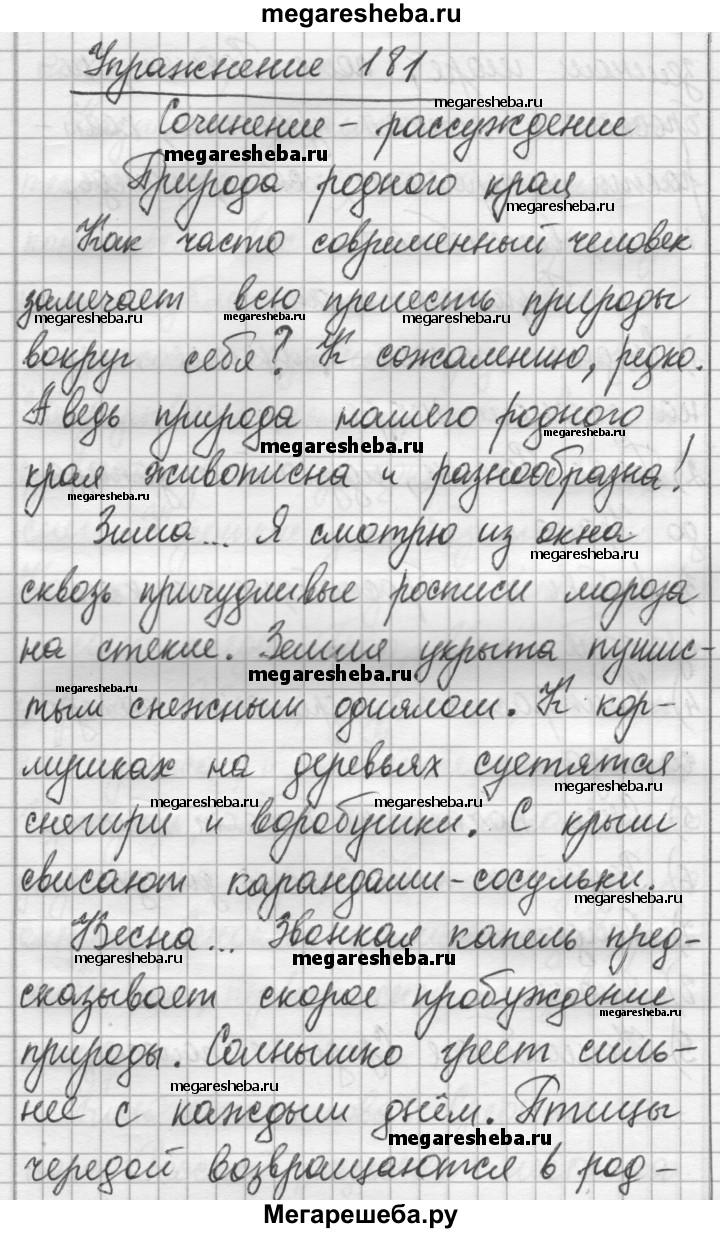 megaresheba.ru
Упражнение 181
megaresheba.ru
Сочинение - рассуждение
megaresheba.ru
Природа родного края
megaresheba.ru
Как часто современный человек
замечает всю прелесть природы
megaresheba.ru megaresheba.ru megaresheba.ru
вокруг себя? К сожалению, редко.
А ведь природа нашего родного
megaresheba.ru megaresheba.ru
края живописна и разнообразна!
megaresheba.ru
Зима... Я смотрю из окна
megaresheba.ru
сквозь причудливые росписи мороза
на стекле. Земля укрыта пушис-
megaresheba.ru megaresheba.ru
тым снежным одиялом. К кор-
мушках на деревьях суетятся
megaresheba.ru
megaresheba.ru megaresheba.ru
снегири и воробушки. С крыш
свисают карандаши-сосульки.
megaresheba.ru
Весна... Звонкая капель пред-
megaresheba.ru megaresheba.ru
сказывает скорое пробуждение
megaresheba.ru
природы. Солнышко греет силь-
megaresheba.ru
нее с каждым днём. Птицы
megaresheba.ru
чередой возвращаются в род-
Мегарешеба.ру